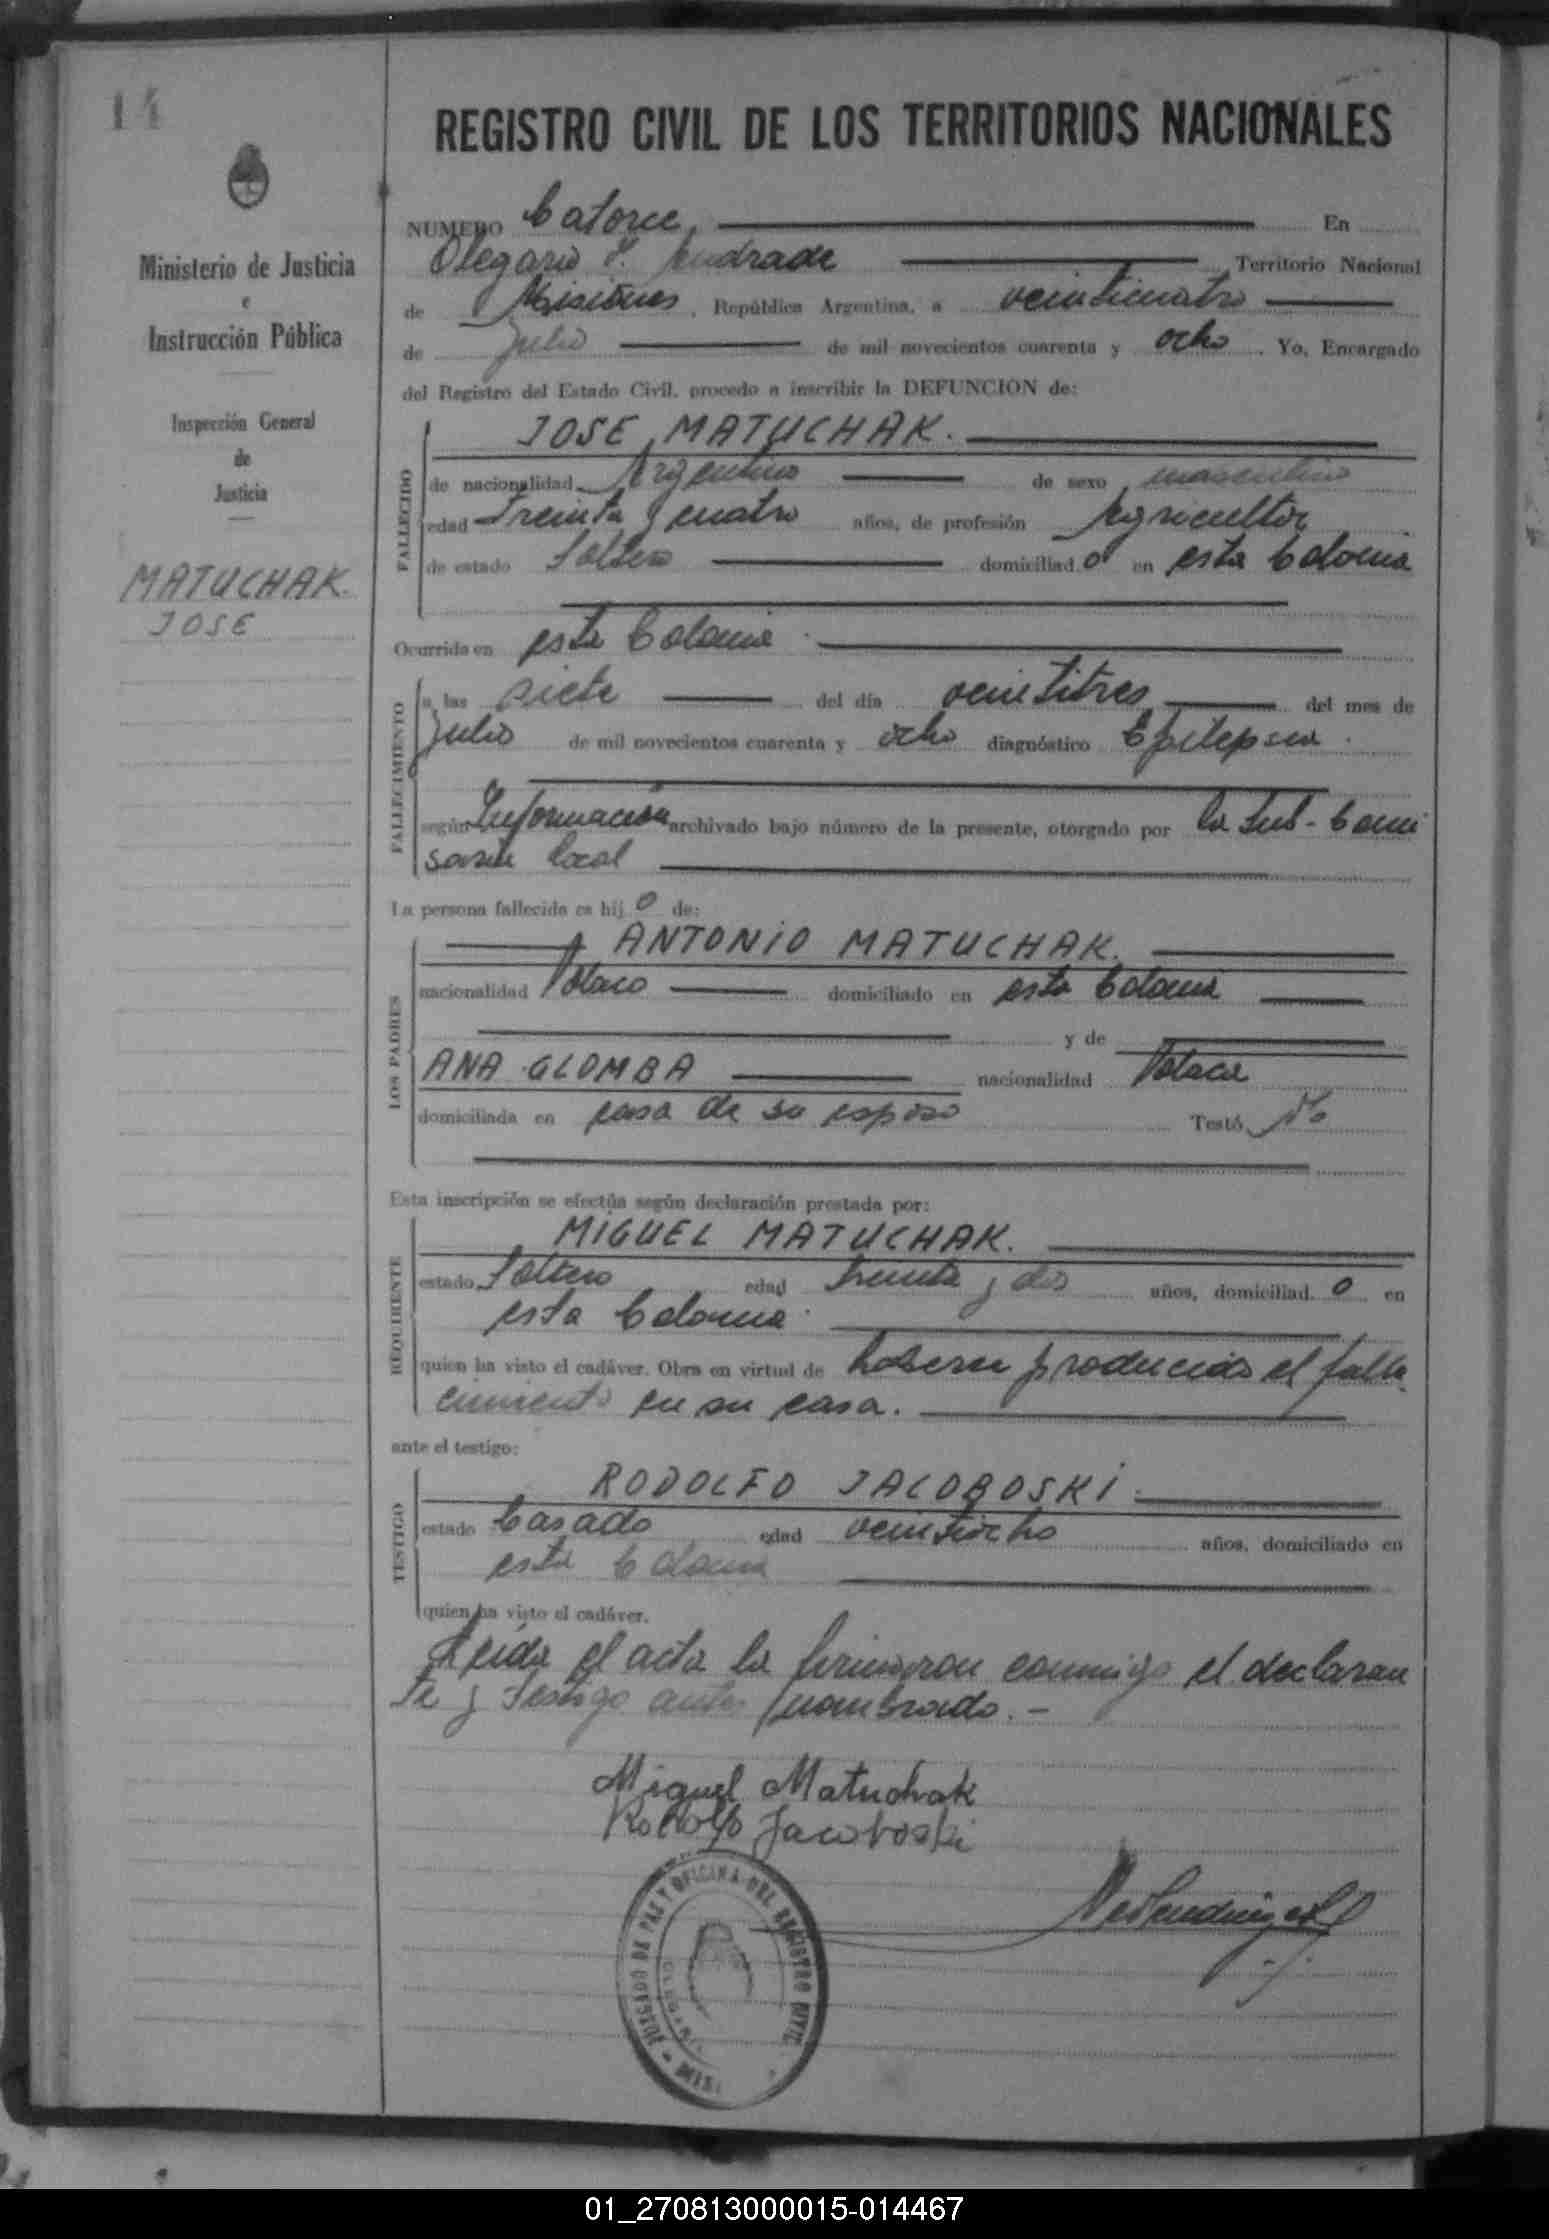 14
REGISTRO CIVIL DE LOS TERRITORIOS NACIONALES
Ministerio de Justicia
e
Instrucción Pública
Inspección General
de
Justicia
MATUCHAK.
JOSE
NUMERO Catorce, En
Olegario V. Andrade Territorio Nacional
de Misiones, República Argentina, a veinticuatro
de Julio de mil novecientos cuarenta y ocho. Yo, Encargado
del Registro del Estado Civil, procedo a inscribir la DEFUNCION de:
FALLECIDO
JOSE MATUCHAK.
de nacionalidad Argentino de sexo masculino
edad Treinta y cuatro años, de profesión Agricultor
de estado Soltero domiciliad o en esta Colonia
Ocurrida en esta Colonia
FALLECIMIENTO
a las siete del día veintitres del mes de
Julio de mil novecientos cuarenta y ocho diagnóstico Epilepsia.
según Información archivado bajo número de la presente, otorgado por la Sub-Comi
saria local
La persona fallecida es hij o de:
LOS PADRES
ANTONIO MATUCHAK.
nacionalidad Polaco domiciliado en esta Colonia
y de
ANA GLOMBA nacionalidad Polaca
domiciliada en casa de su esposo Testó No
Esta inscripción se efectúa según declaración prestada por:
REQUIRENTE
MIGUEL MATUCHAK.
estado Soltero edad treinta y dos años, domiciliad o en
esta Colonia
quien ha visto el cadáver. Obra en virtud de haberse producido el falle
cimiento en su casa.
ante el testigo:
TESTIGO
RODOLFO JACOBOSKI.
estado Casado edad veintiocho años, domiciliado en
esta Colonia
quien ha visto el cadáver.
Leída el acta la firmaron conmigo el declaran
te y testigo antes nombrado.-
Miguel Matuchak
Rodolfo Jacoboski
JUZGADO DE PAZ Y OFICINA DEL REGISTRO CIVIL
01_270813000015-014467